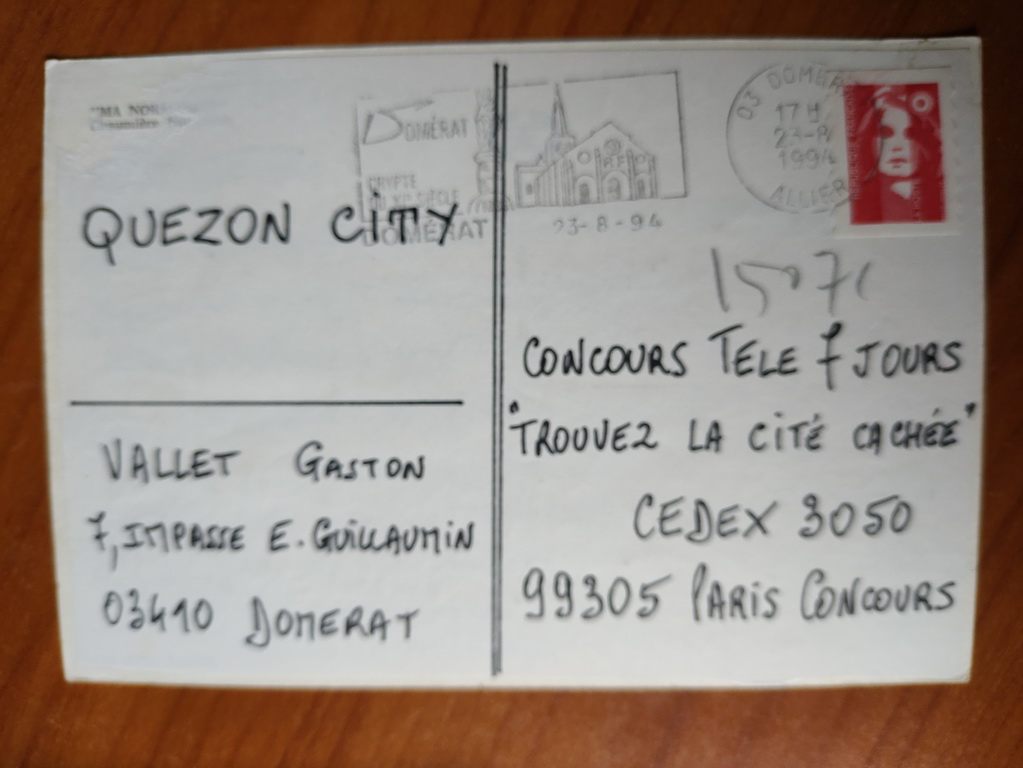 "MA
Chaumière
DOMÉRAT
CRYPTE
DU XIe SIÈCLE
DOMÉRAT
23-8-94
03 DOMÉRAT
17 H
23-8
1994
ALLIER
QUEZON CITY
VALLET GASTON
7, IMPASSE E. GUILLAUMIN
03410 DOMERAT
CONCOURS TELE 7 JOURS
"TROUVEZ LA CITÉ CACHÉE"
CEDEX 3050
99305 PARIS CONCOURS